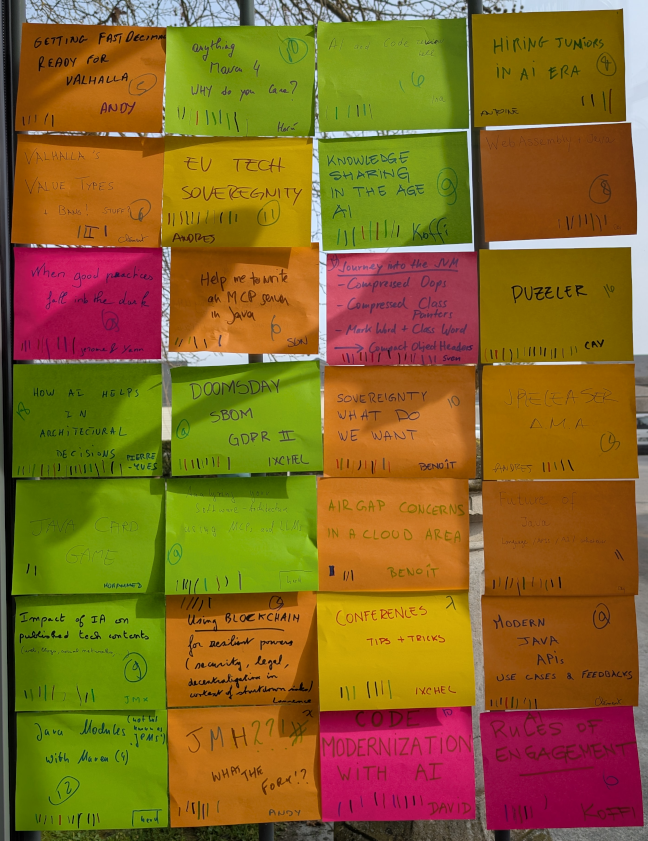 GETTING FASTDECIMAL
READY FOR
VALHALLA
ANDY
anything
Maven 4
WHY do you care?
10
Hervé
6
HIRING JUNIORS
IN AI ERA
ANTOINE
VALHALLA'S
VALUE TYPES
EU TECH
SOVEREGNITY
11
ANDRES
KNOWLEDGE
SHARING
IN THE AGE
AI
9
Koffi
WebAssembly
8
When good practices
fall into the dark
Help me to write
an MCP server
in Java
6
SUN
Journey into the JVM
- Compressed Oops
- Compressed Class
Pointers
- Mark Word + Class Word
→ Compact Object Headers
Sven
PUZZLER
10
CAY
HOW AI HELPS
IN
ARCHITECTURAL
DECISIONS
PIERRE
-YVES
DOOMSDAY
SBOM
GDPR II
IXCHEL
SOVEREIGNTY
10
WHAT DO
WE WANT
BENOÎT
JRELEASER
AMA
ANDRES
JAVA CARD
GAME
MOHAMMED
Software Architecture
using MCP
AIRGAP CONCERNS
IN A CLOUD AREA
BENOÎT
Future of
Java
Impact of IA on
published tech contents
9
JMX
Using BLOCKCHAIN
for resilient process
(security, legal,
decentralization in
context of shutdown risks)
Laurence
CONFERENCES
TIPS + TRICKS
IXCHEL
MODERN
JAVA
APIs
USE CASES & FEEDBACKS
Java Modules
(not
JPMS)
with Maven (4)
12
JMH??!#
WHAT THE
FORK!?
ANDY
CODE
10
MODERNIZATION
WITH AI
DAVID
AI
RULES OF
ENGAGEMENT
6
KOFFI